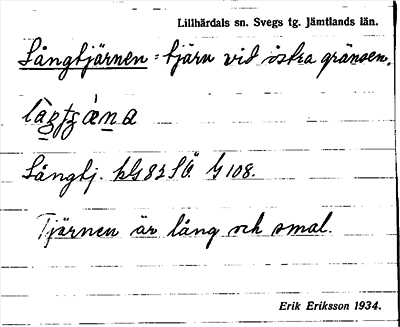 Lillhärdals sn. Svegs tg. Jämtlands län.
Långtjärnen = tjärn vid östra gränsen.
Långtj. bls 82 SÖ
Tjärnen är lång och smal.
Erik Eriksson 1934.